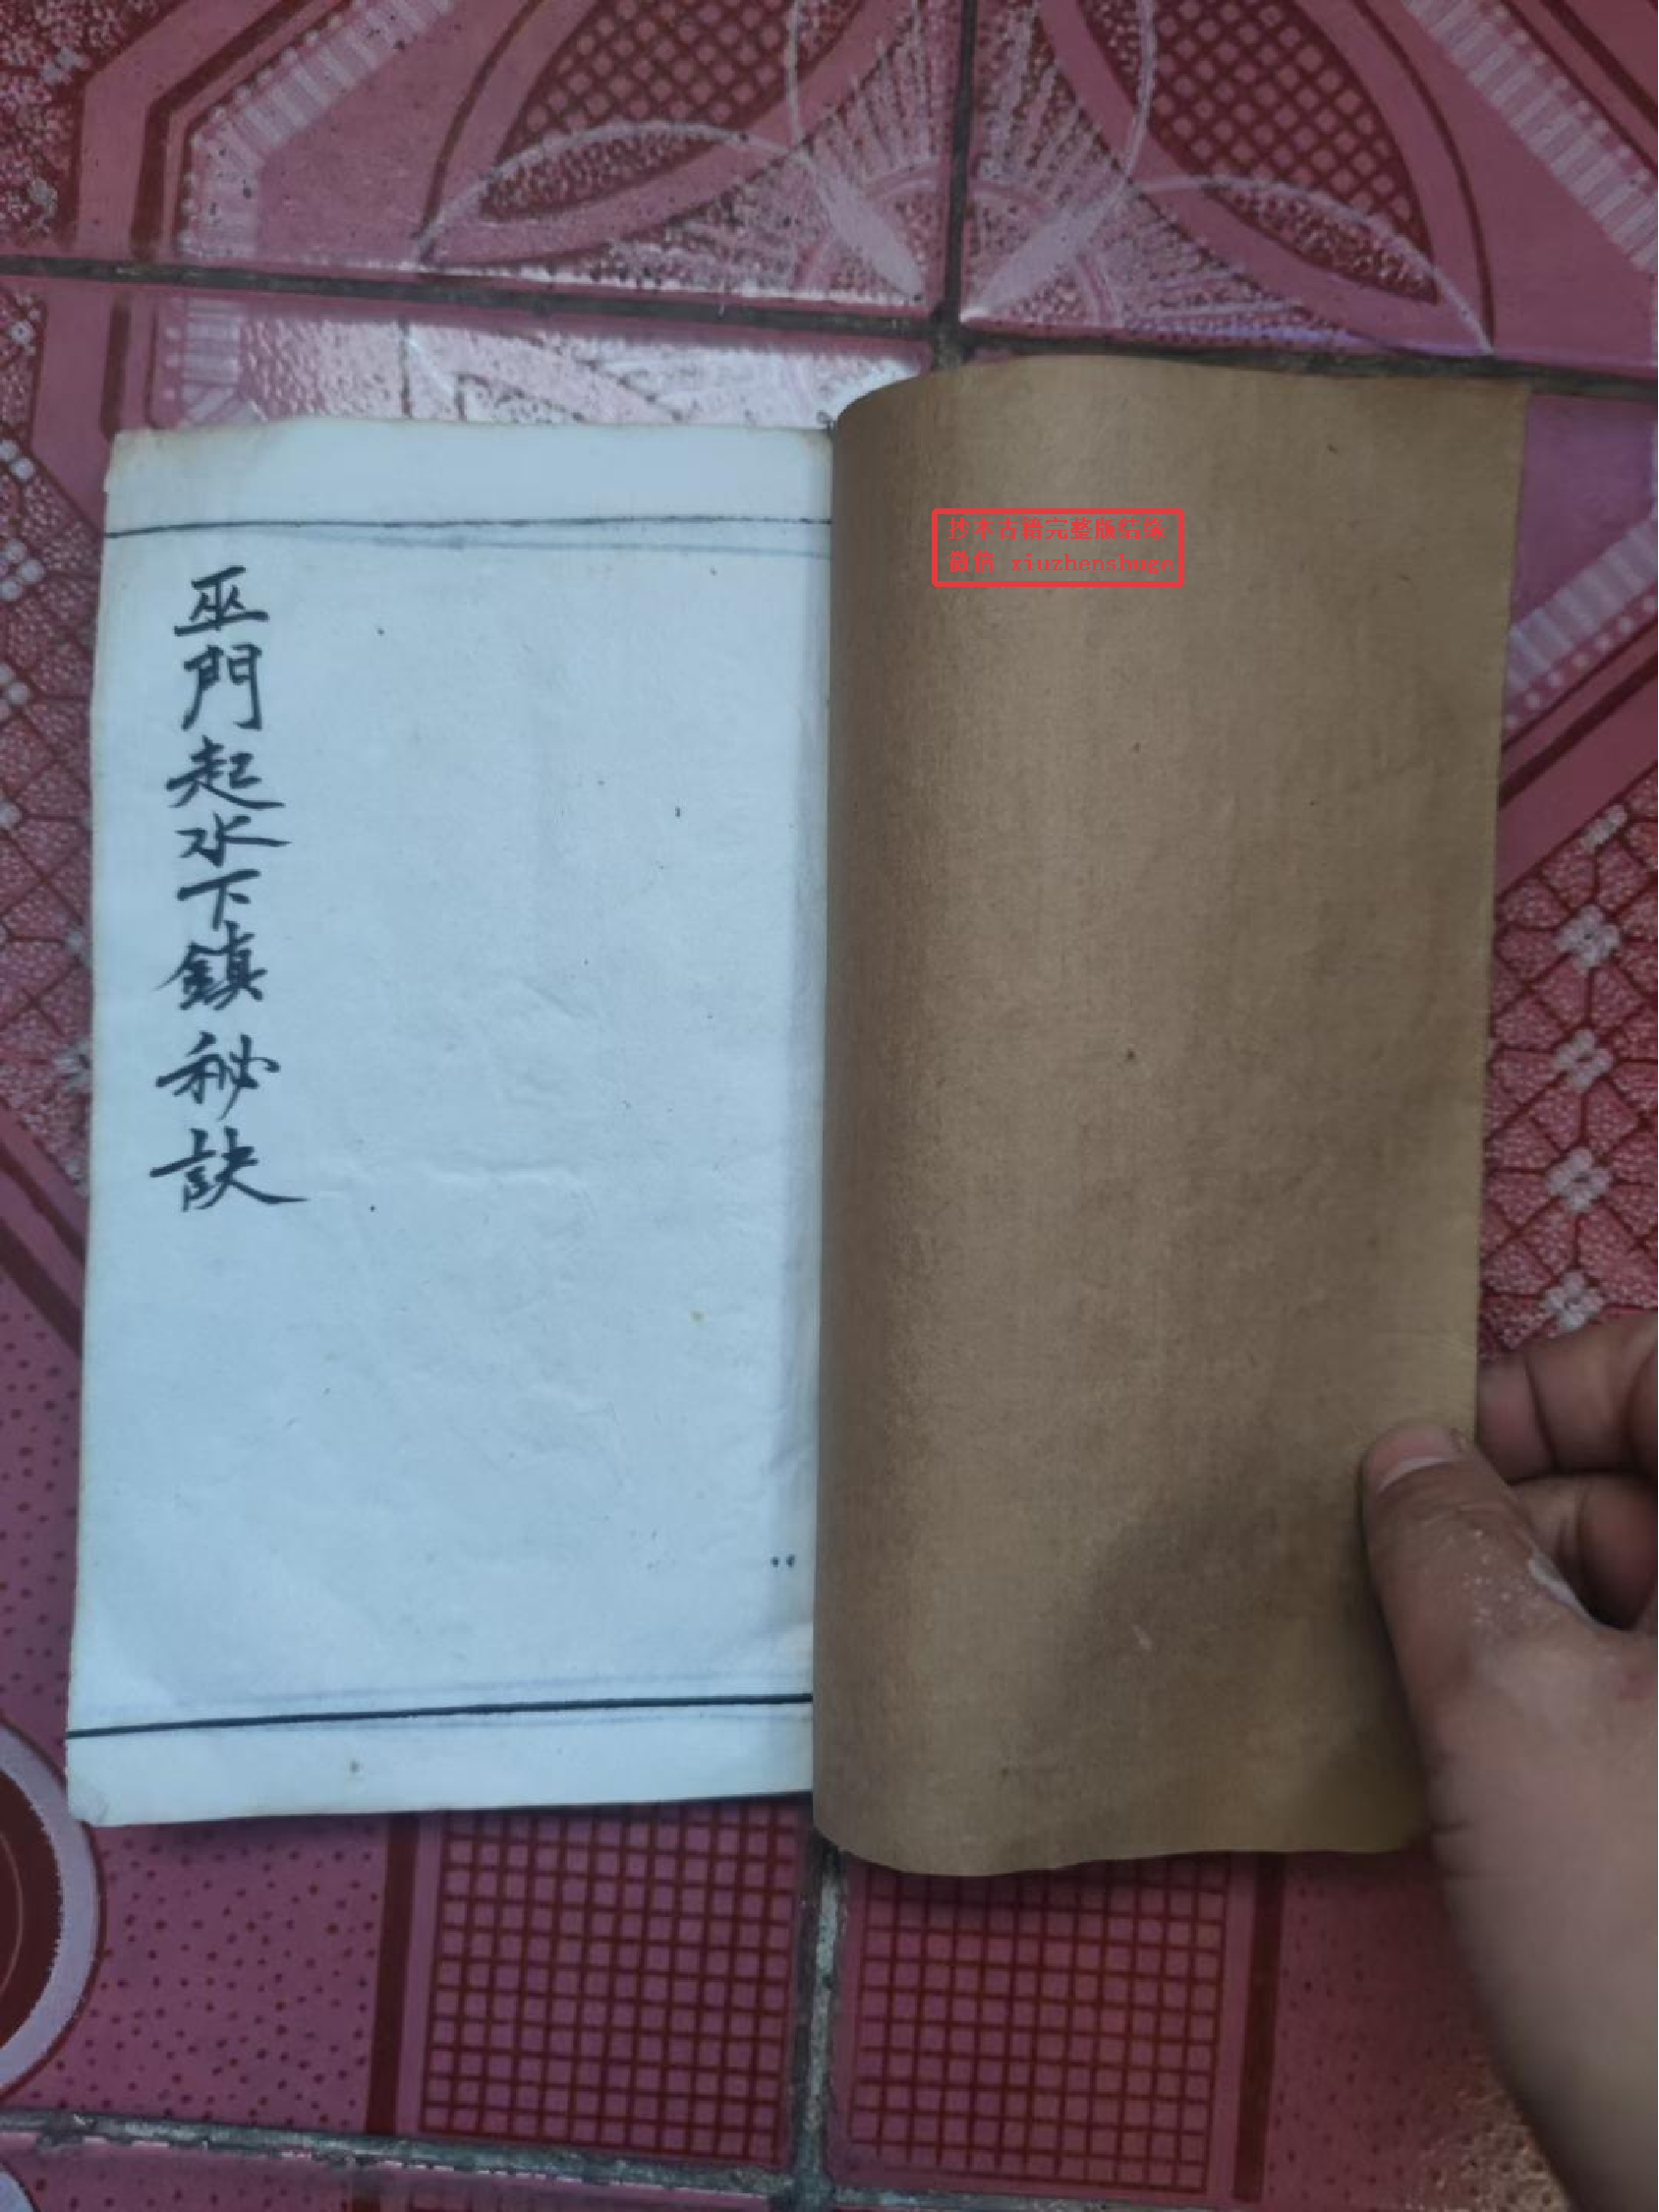 巫門起水下鎮秘訣
抄本古籍完整版结缘
微信 xiuzhenshuge